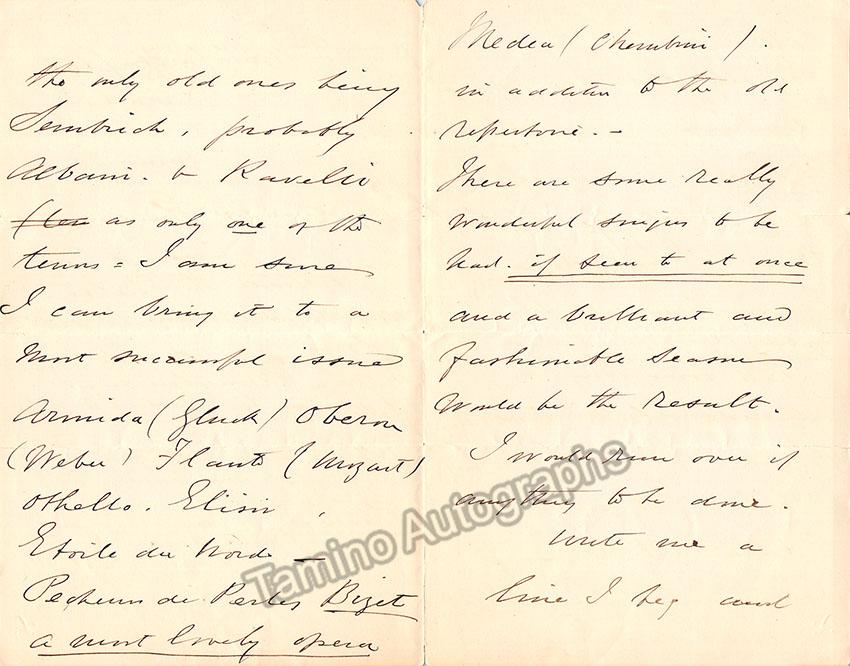 the only old ones being
Sembrich, probably
Albani - & Ravelli
as only one of the
tenors = I am sure
I can bring it to a
most successful issue
Armida (Gluck) Oberon
(Weber) Flauto (Mozart)
Othello. Elisir,
Etoile du Nord —
Pecheurs de Perles Bizet
a most lovely opera
Medea (Cherubini).
in addition to the old
repertoire. -
There are some really
wonderful singers to be
had. if seen to at once
and a brilliant and
fashionable season
would be the result.
I would run over if
anything to be done.
Write me a
line I beg and
Tamino Autographs